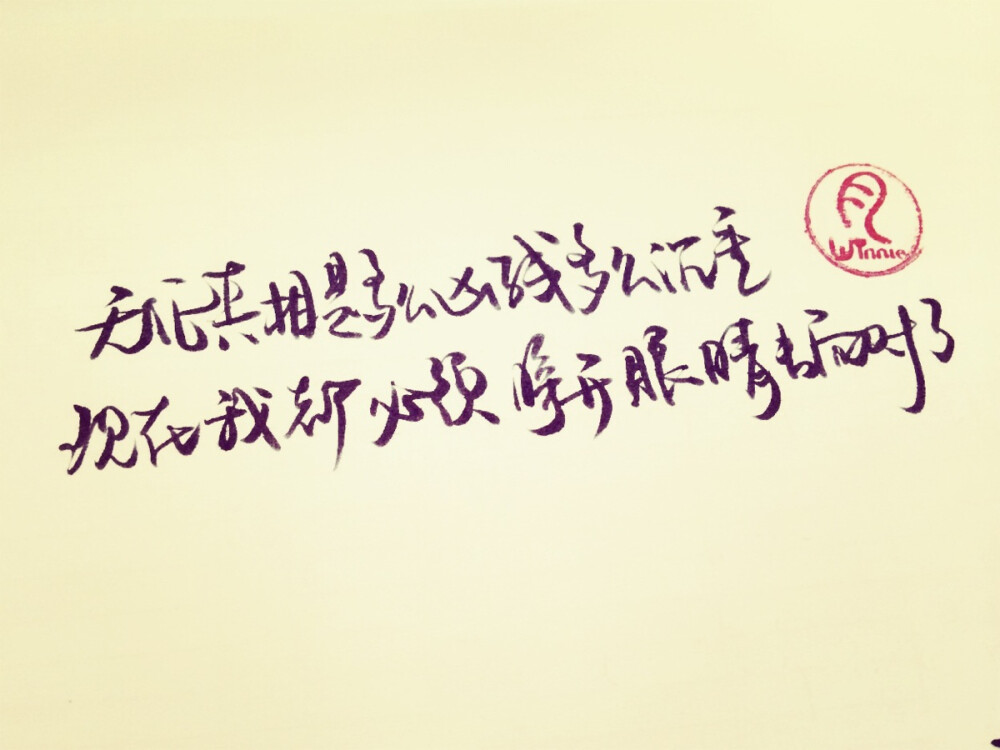 无论真相是多么凶残多么沉重
现在我都必须睁开眼睛去面对了
Winnie